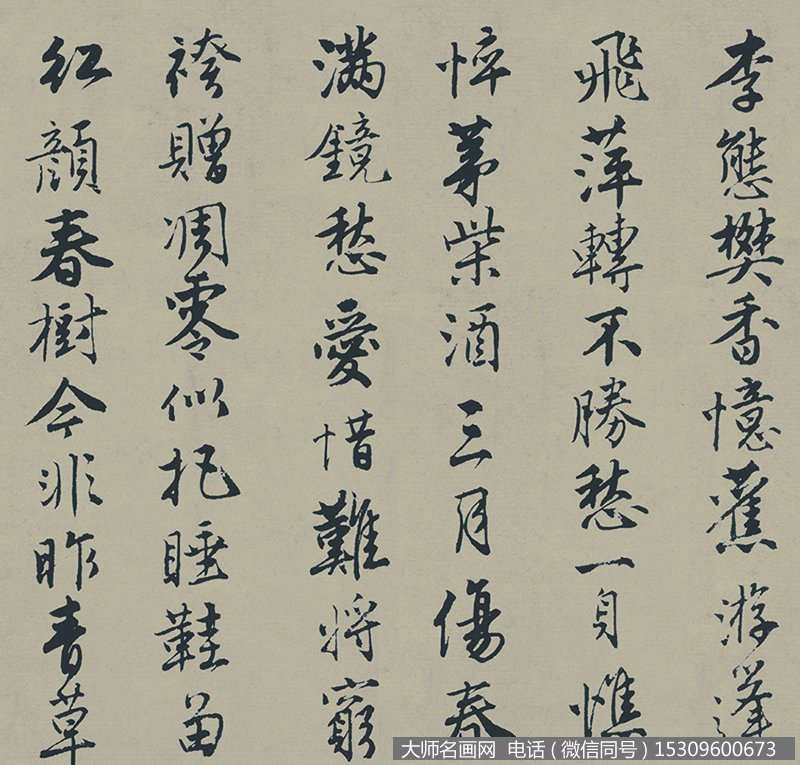 李態樊香憶舊游蓬
飛萍轉不勝愁一身憔
悴茅柴酒三月傷春
滿鏡愁愛惜難將窮
袴贈凋零似把睡鞋留
紅顏春樹今非昨青草
大师名画网 电话(微信同号)15309600673